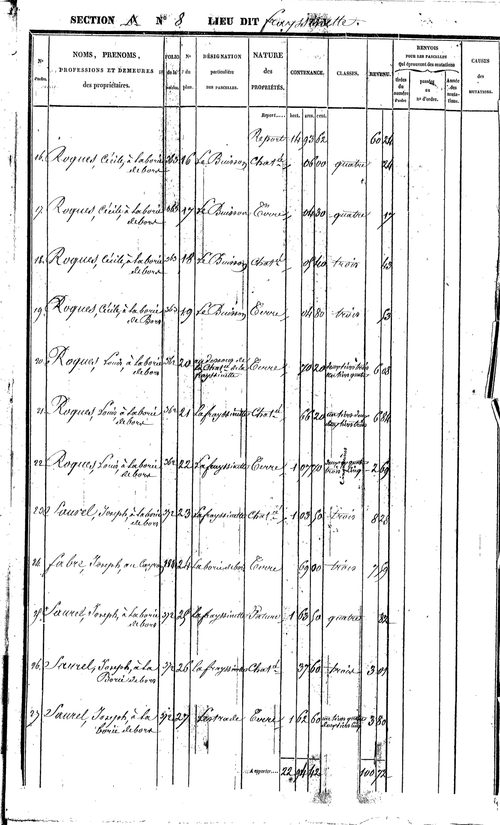 SECTION A N° 8 LIEU DIT frayssinette.
N° d'ordre. NOMS, PRENOMS, PROFESSIONS ET DEMEURES des propriétaires. FOLIO N° du plan. DÉSIGNATION particulière DES PARCELLES. NATURE des PROPRIÉTÉS. CONTENANCE. CLASSES. REVENU. RENVOIS POUR LES PARCELLES qui éprouvent des mutations CAUSES des MUTATIONS.
Report.... hect. ares. cent.
Report 14 93 62 60 24
16. Roques, Cécile, à Laborie de bors 363 16 Le Buisson Chat. 06 00 quatre 24
17. Roques, Cécile, à Laborie de bors 363 17 Le Buisson Terre 04 30 quatre 17
18. Roques, Cécile, à Laborie de bors 363 18 Le Buisson Chat. 05 40 trois 43
19. Roques, Cécile, à Laborie de Bors 363 19 Le Buisson Terre 04 80 trois 53
20. Roques, Louis, à Laborie de bors 362 20 au dessous de la Chat. de la frayssinette Terre 70 20 6 08
21. Roques, Louis, à Laborie de bors 362 21 La frayssinette Chat. 66 20 6 84
22. Roques, Louis, à Laborie de bors 362 22 La frayssinette Terre 1 07 70 2 69
23. Saurel, Joseph, à Laborie de bors 372 23 La frayssinette Chat. 1 03 50 trois 8 28
24. fabre, Joseph, 24 Laborie de bors Terre 69 00 trois 7 59
25. Saurel, Joseph, à Laborie de bors 372 25 La frayssinette Pature 1 63 50 quatre 82
26. Saurel, Joseph, à la Borie de bors 372 26 La frayssinette Chat. 37 60 trois 3 01
27. Saurel, Joseph, à la borie de bors 372 27 Lestrade Terre 1 62 60 3 80
A reporter..... 22 94 42 100 72